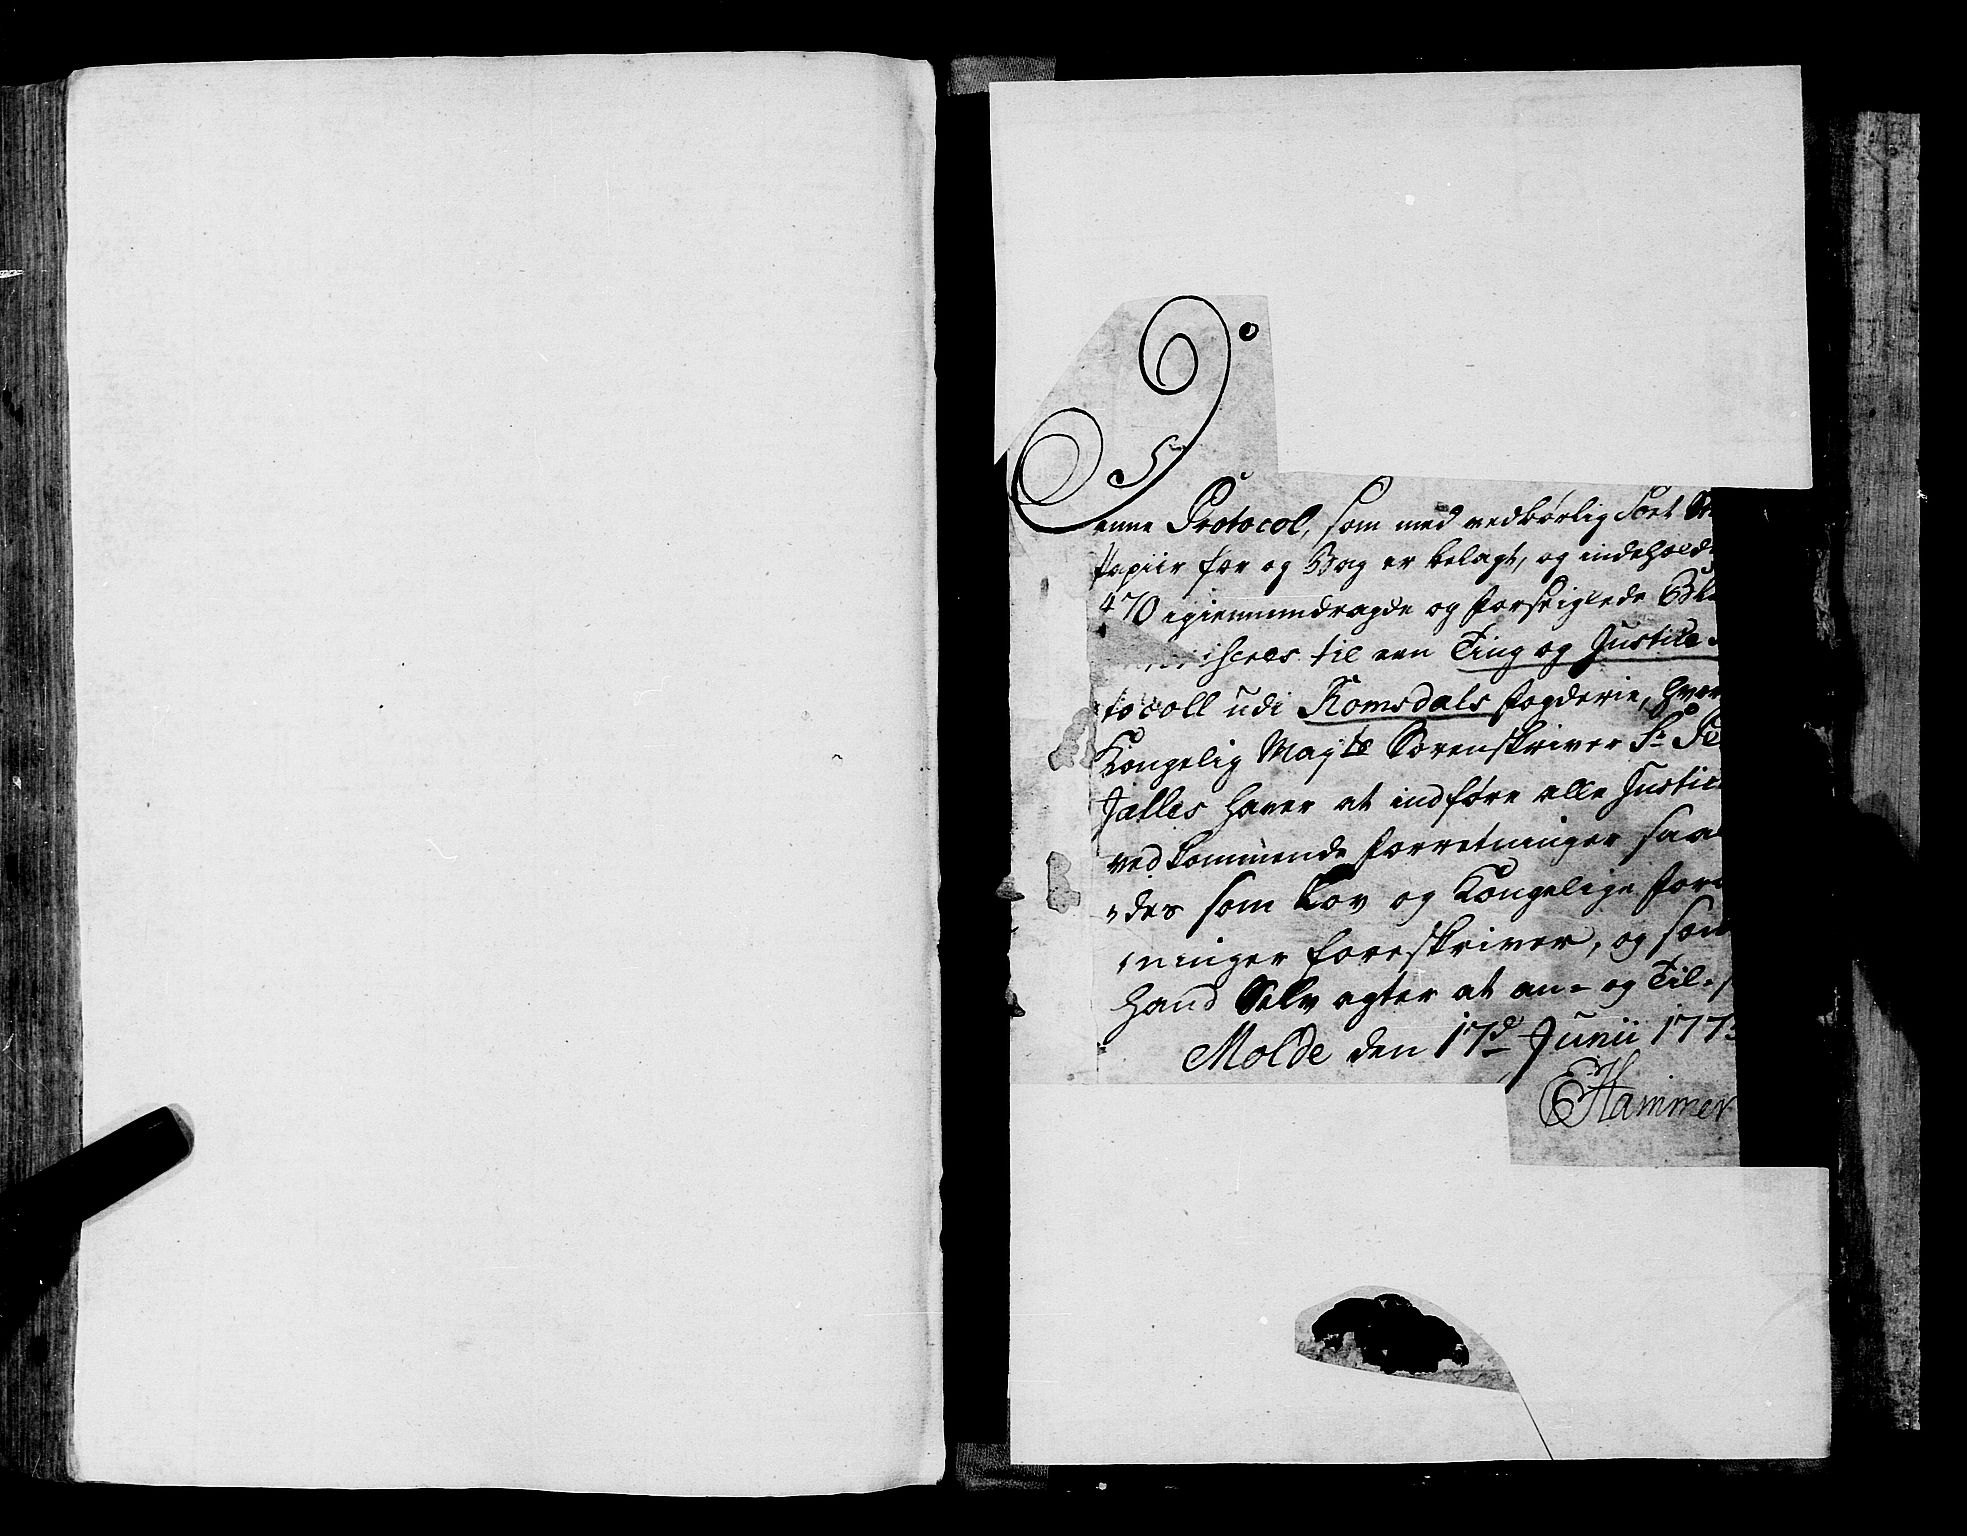 Denne Protocol, som med vedbørlig Sort
Papiir for og Bag er belagt, og indehold
470 igiennemdragde og forseiglede
til een Ting og Justice-
tocoll udi Romsdals fogderie, hvor
Kongelig Mayts Sorenskriver Sr.
Jalles haver at indføre alle Justice
vedkommende forretninger saa
des som Lov og Kongelige for
ninger foreskriver, og som
hand Selv agter at an- og Til-
Molde den 17d Junii 1773
EHammer